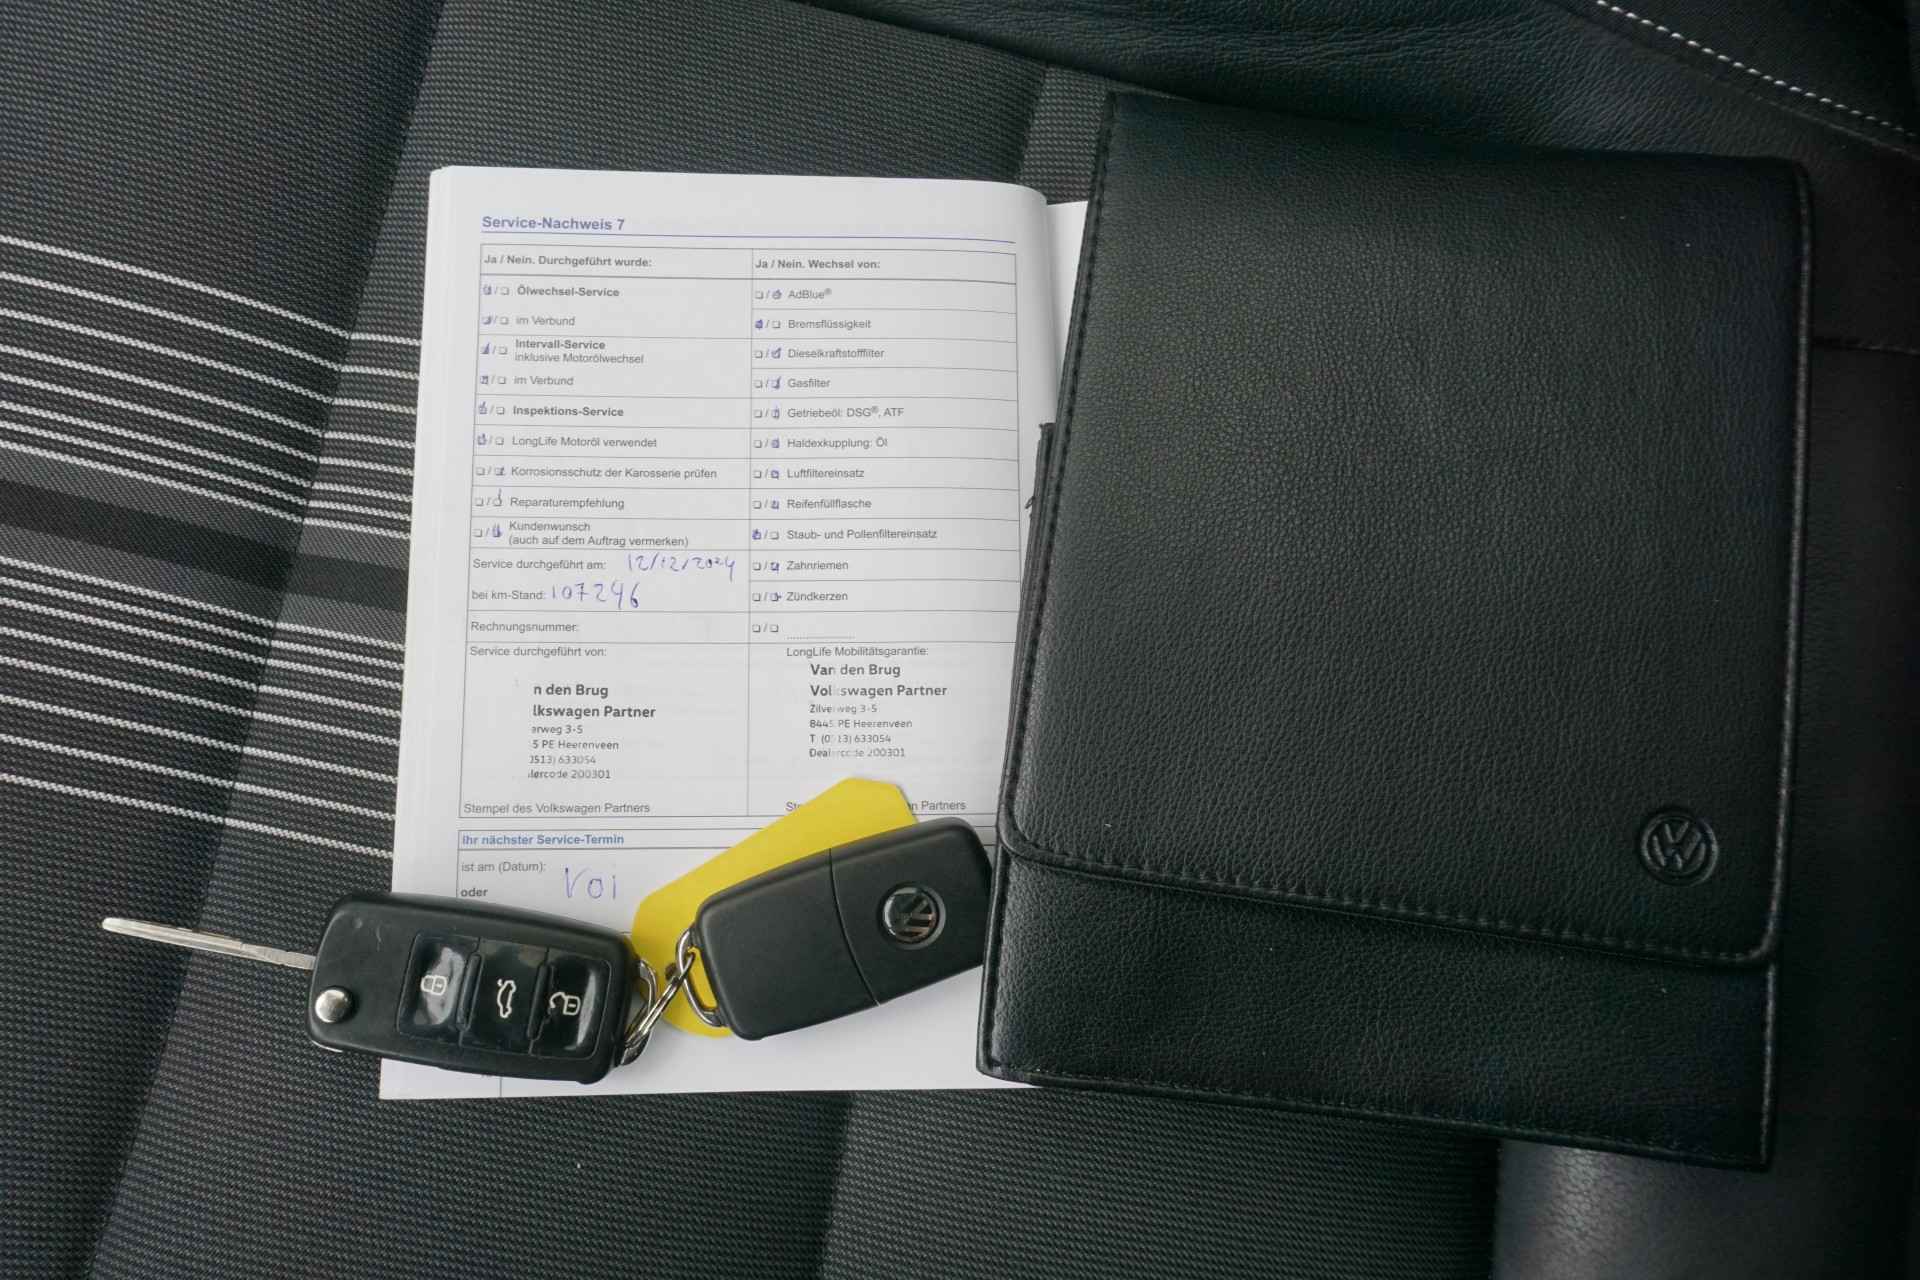 Service-Nachweis 7
Ja / Nein. Durchgeführt wurde:
Ölwechsel-Service
im Verbund
Intervall-Service
inklusive Motorölwechsel
im Verbund
Inspektions-Service
LongLife Motoröl verwendet
Korrosionsschutz der Karosserie prüfen
Reparaturempfehlung
Kundenwunsch
(auch auf dem Auftrag vermerken)
Service durchgeführt am: 12/12/2024
bei km-Stand: 107296
Rechnungsnummer:
Service durchgeführt von:
n den Brug
lkswagen Partner
erweg 3-5
5 PE Heerenveen
513) 633054
lercode 200301
Stempel des Volkswagen Partners
Ja / Nein. Wechsel von:
AdBlue®
Bremsflüssigkeit
Dieselkraftstofffilter
Gasfilter
Getriebeöl: DSG®, ATF
Haldexkupplung: Öl
Luftfiltereinsatz
Reifenfüllflasche
Staub- und Pollenfiltereinsatz
Zahnriemen
Zündkerzen
LongLife Mobilitätsgarantie:
Van den Brug
Volkswagen Partner
Zilverweg 3-5
8445 PE Heerenveen
T (0513) 633054
Dealercode 200301
Ste n Partners
Ihr nächster Service-Termin
ist am (Datum):
oder